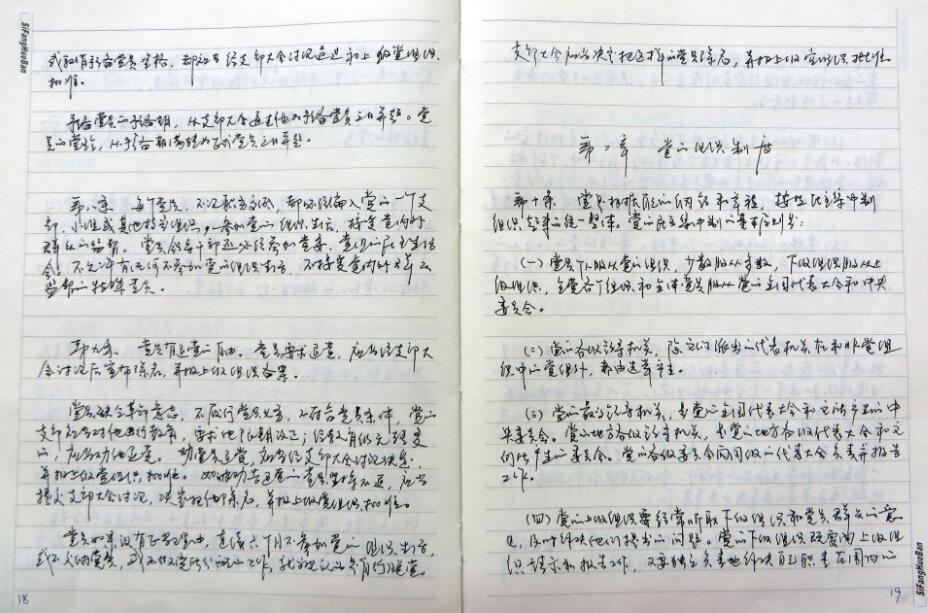 SiFangHuoBan
或取消预备党员资格，都必须经支部大会讨论通过和上级党组织
批准。
预备党员的预备期，从支部大会通过他为预备党员之日算起。党
员的党龄，从预备期满转为正式党员之日算起。
第八条 每个党员，不论职务高低，都必须编入党的一个支
部、小组或其他特定组织，参加党的组织生活，接受党内外
群众的监督。党员领导干部还必须参加党委、党组的民主生活
会。不允许有任何不参加党的组织生活、不接受党内外群众
监督的特殊党员。
第九条 党员有退党的自由。党员要求退党，应当经支部大
会讨论后宣布除名，并报上级党组织备案。
党员缺乏革命意志，不履行党员义务，不符合党员条件，党的
支部应当对他进行教育，要求他限期改正；经教育仍无转变
的，应当劝他退党。劝党员退党，应当经支部大会讨论决定，
并报上级党组织批准。如被劝告退党的党员坚持不退，应当
提交支部大会讨论，决定把他除名，并报上级党组织批准。
党员如果没有正当理由，连续六个月不参加党的组织生活，
或不交纳党费，或不做党所分配的工作，就被认为是自行脱党。
18
支部大会应当决定把这样的党员除名，并报上级党组织批准。
第二章 党的组织制度
第十条 党是根据自己的纲领和章程，按照民主集中制
组织起来的统一整体。党的民主集中制的基本原则是：
（一）党员个人服从党的组织，少数服从多数，下级组织服从上
级组织，全党各个组织和全体党员服从党的全国代表大会和中央
委员会。
（二）党的各级领导机关，除它们派出的代表机关和在非党组
织中的党组外，都由选举产生。
（三）党的最高领导机关，是党的全国代表大会和它所产生的中
央委员会。党的地方各级领导机关，是党的地方各级代表大会和它
们所产生的委员会。党的各级委员会向同级的代表大会负责并报告
工作。
（四）党的上级组织要经常听取下级组织和党员群众的意
见，及时解决他们提出的问题。党的下级组织既要向上级组
织请示和报告工作，又要独立负责地解决自己职责范围内的
19
SiFangHuoBan